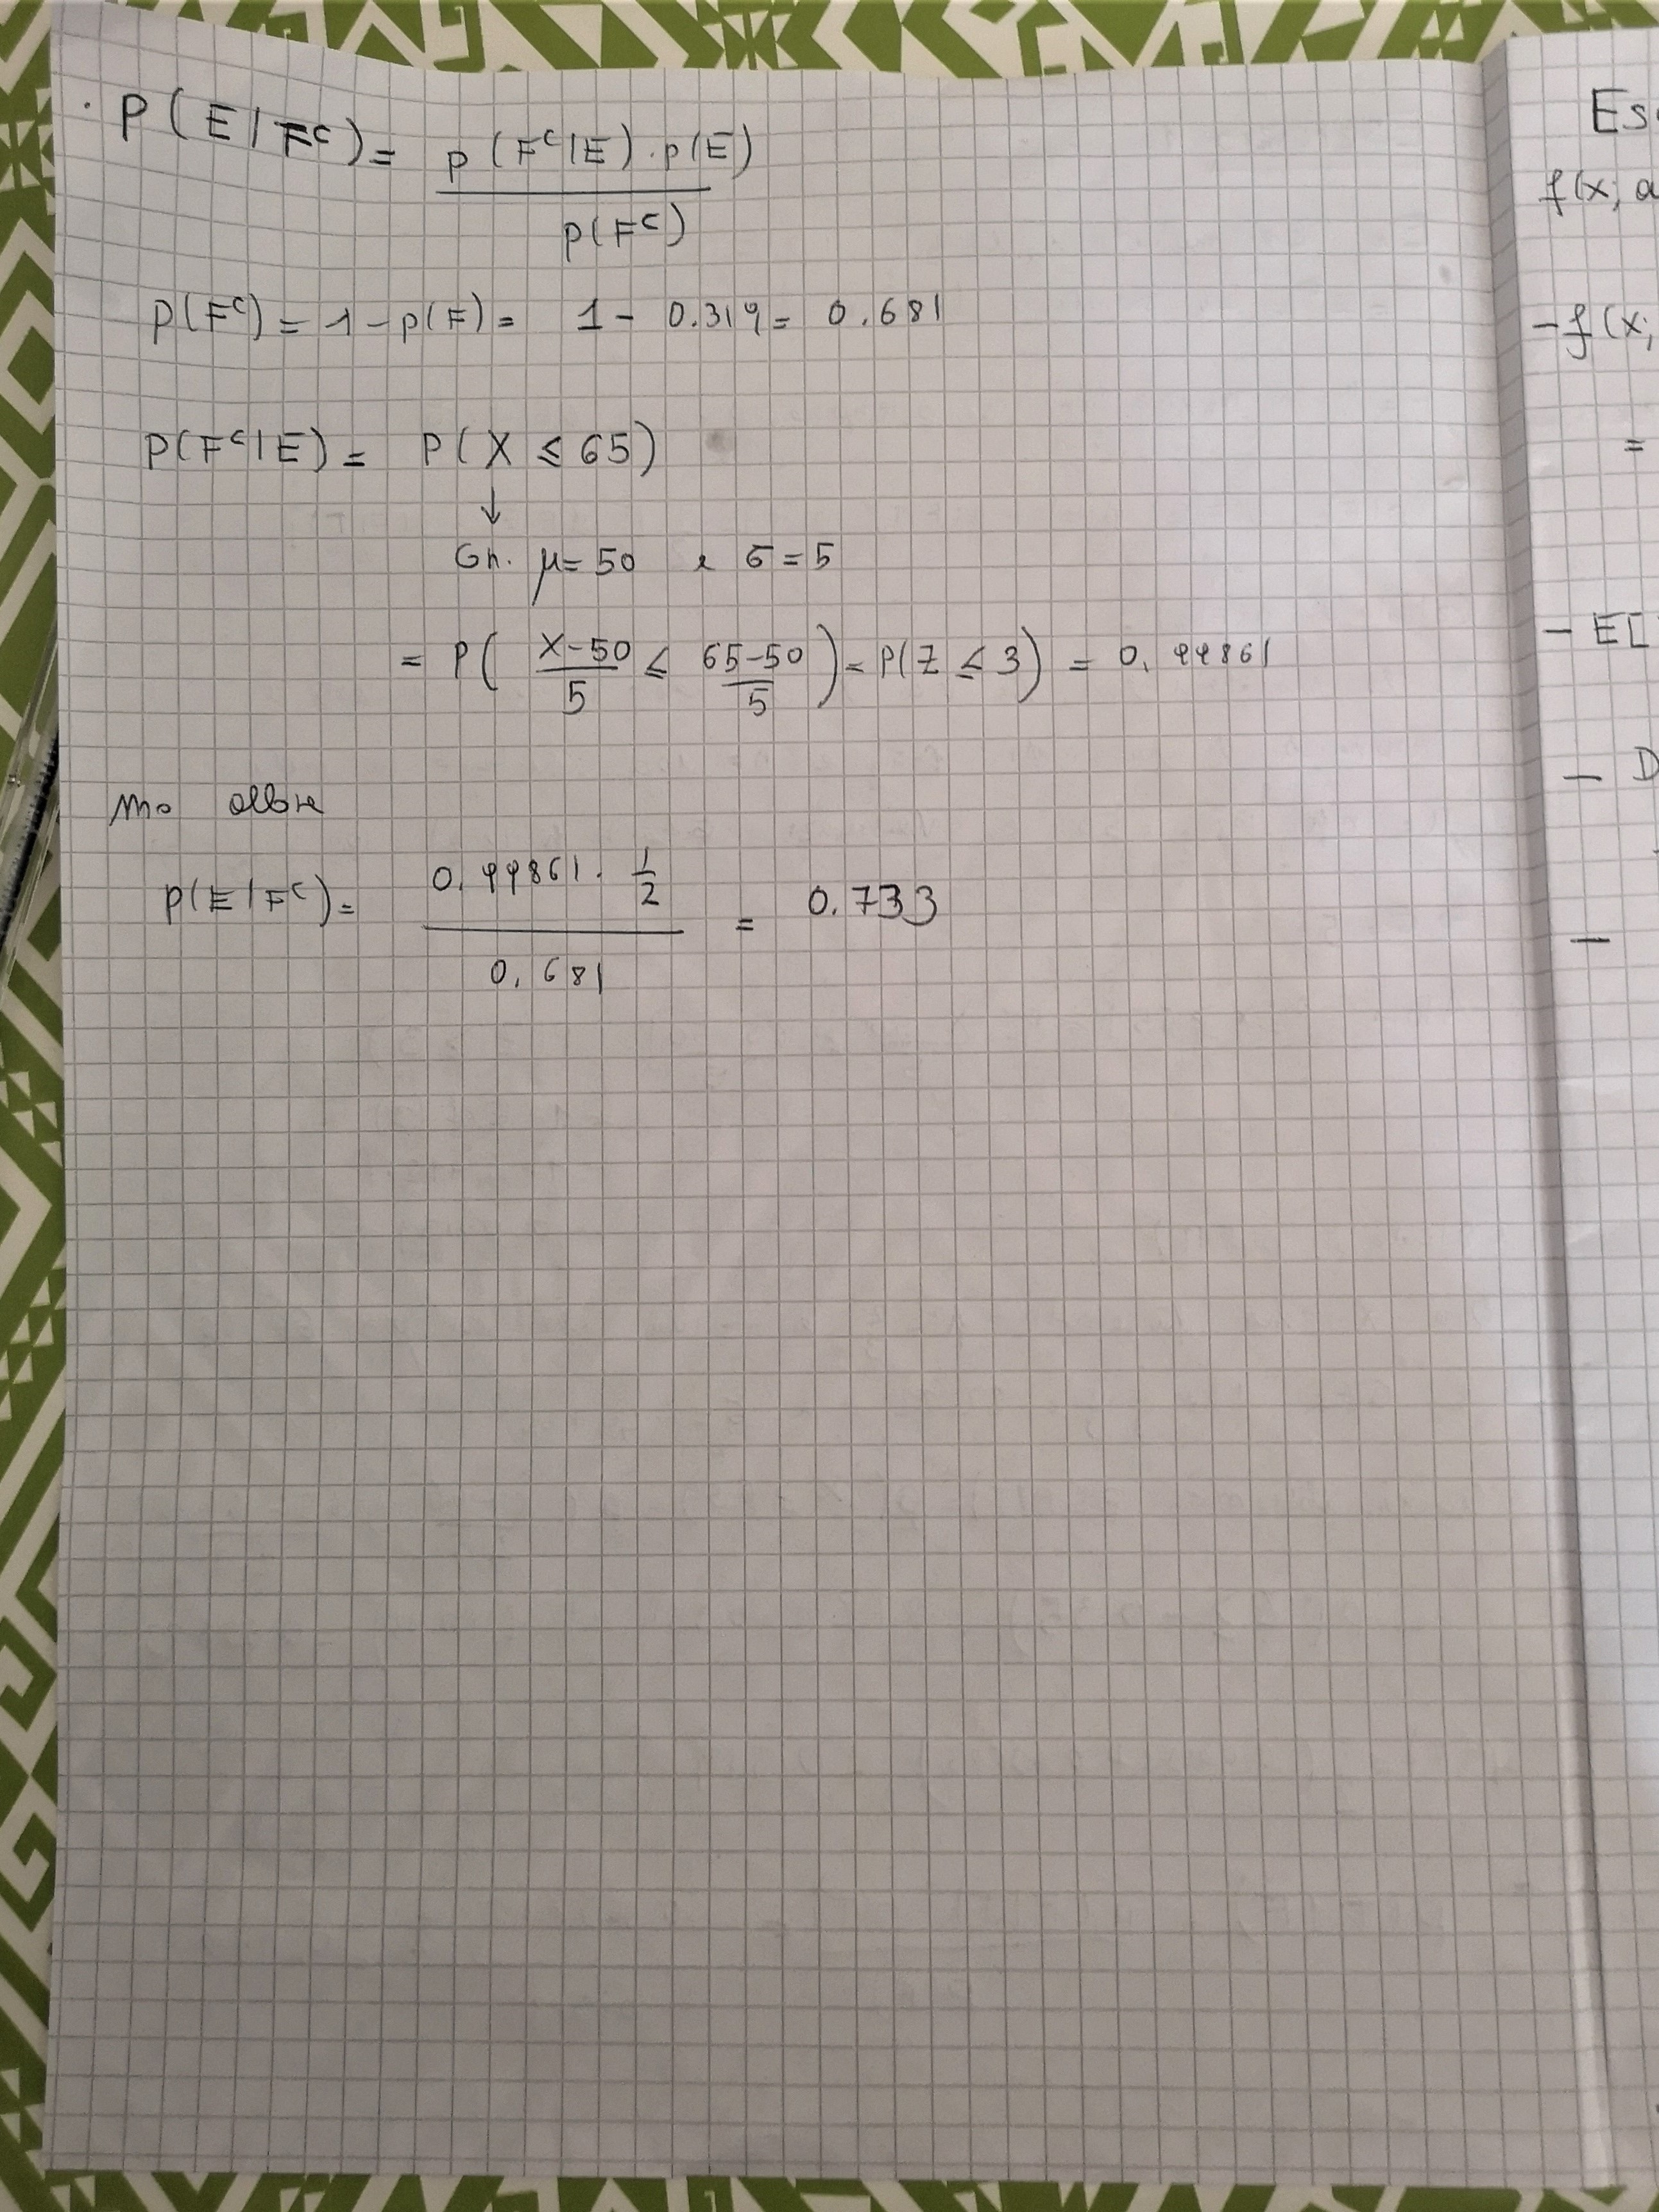 · P(E|Fᶜ) = p(Fᶜ|E)·p(E) / p(Fᶜ)
P(Fᶜ) = 1 - p(F) = 1 - 0.319 = 0.681
P(Fᶜ|E) = P(X ≤ 65)
↓
Gn. μ = 50 e σ = 5
= P( X-50 / 5 ≤ 65-50 / 5 ) = P(Z ≤ 3) = 0.99861
P(E|Fᶜ) = 0.99861 · 1/2 / 0.681 = 0.733
Es
f(x; a
- f(x;
=
- E[
- D
-